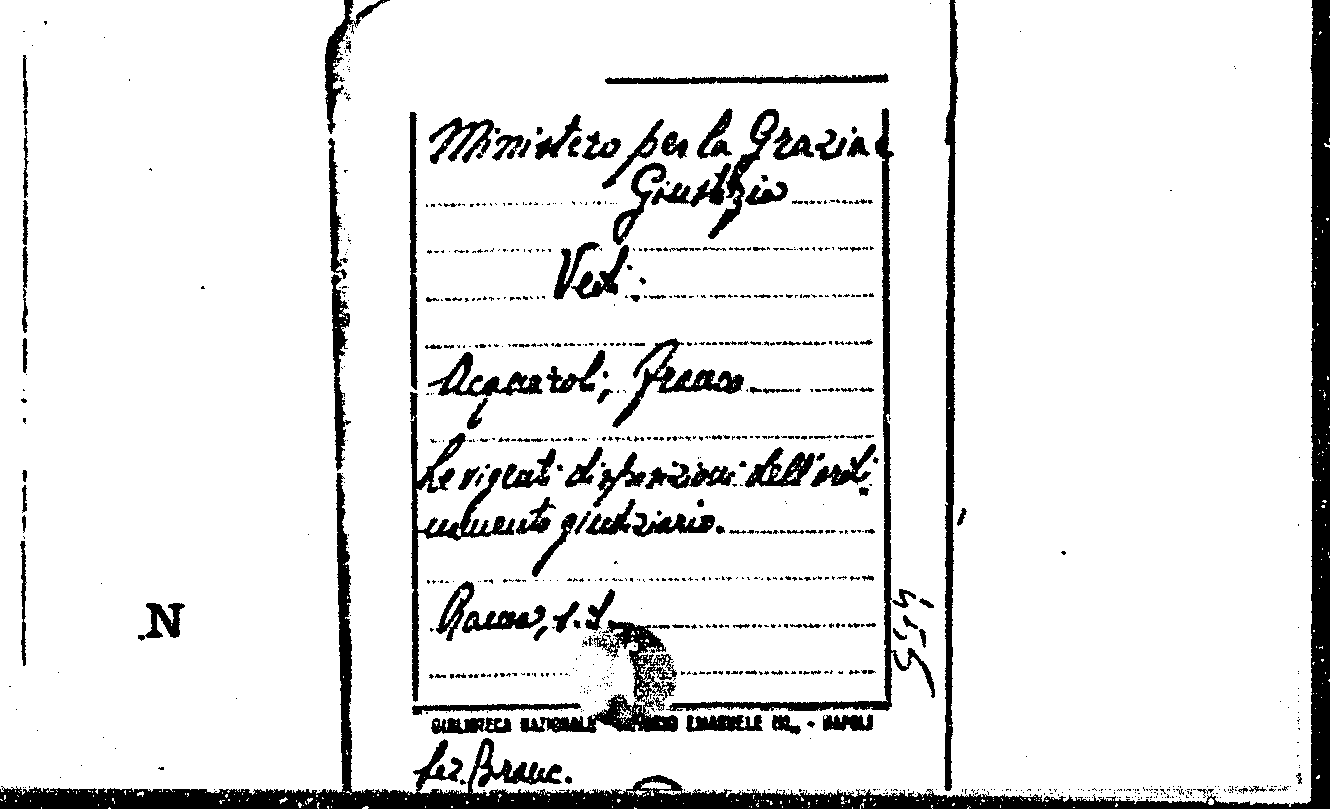 Ministero per la Grazia e
Giustizia
Vedi:
Acquaroli, Franco.
Le vigenti disposizioni dell'ordi
namento giudiziario.
s.d.
BIBLIOTECA NAZIONALE VITTORIO EMANUELE III - NAPOLI
Sez. Branc.
N